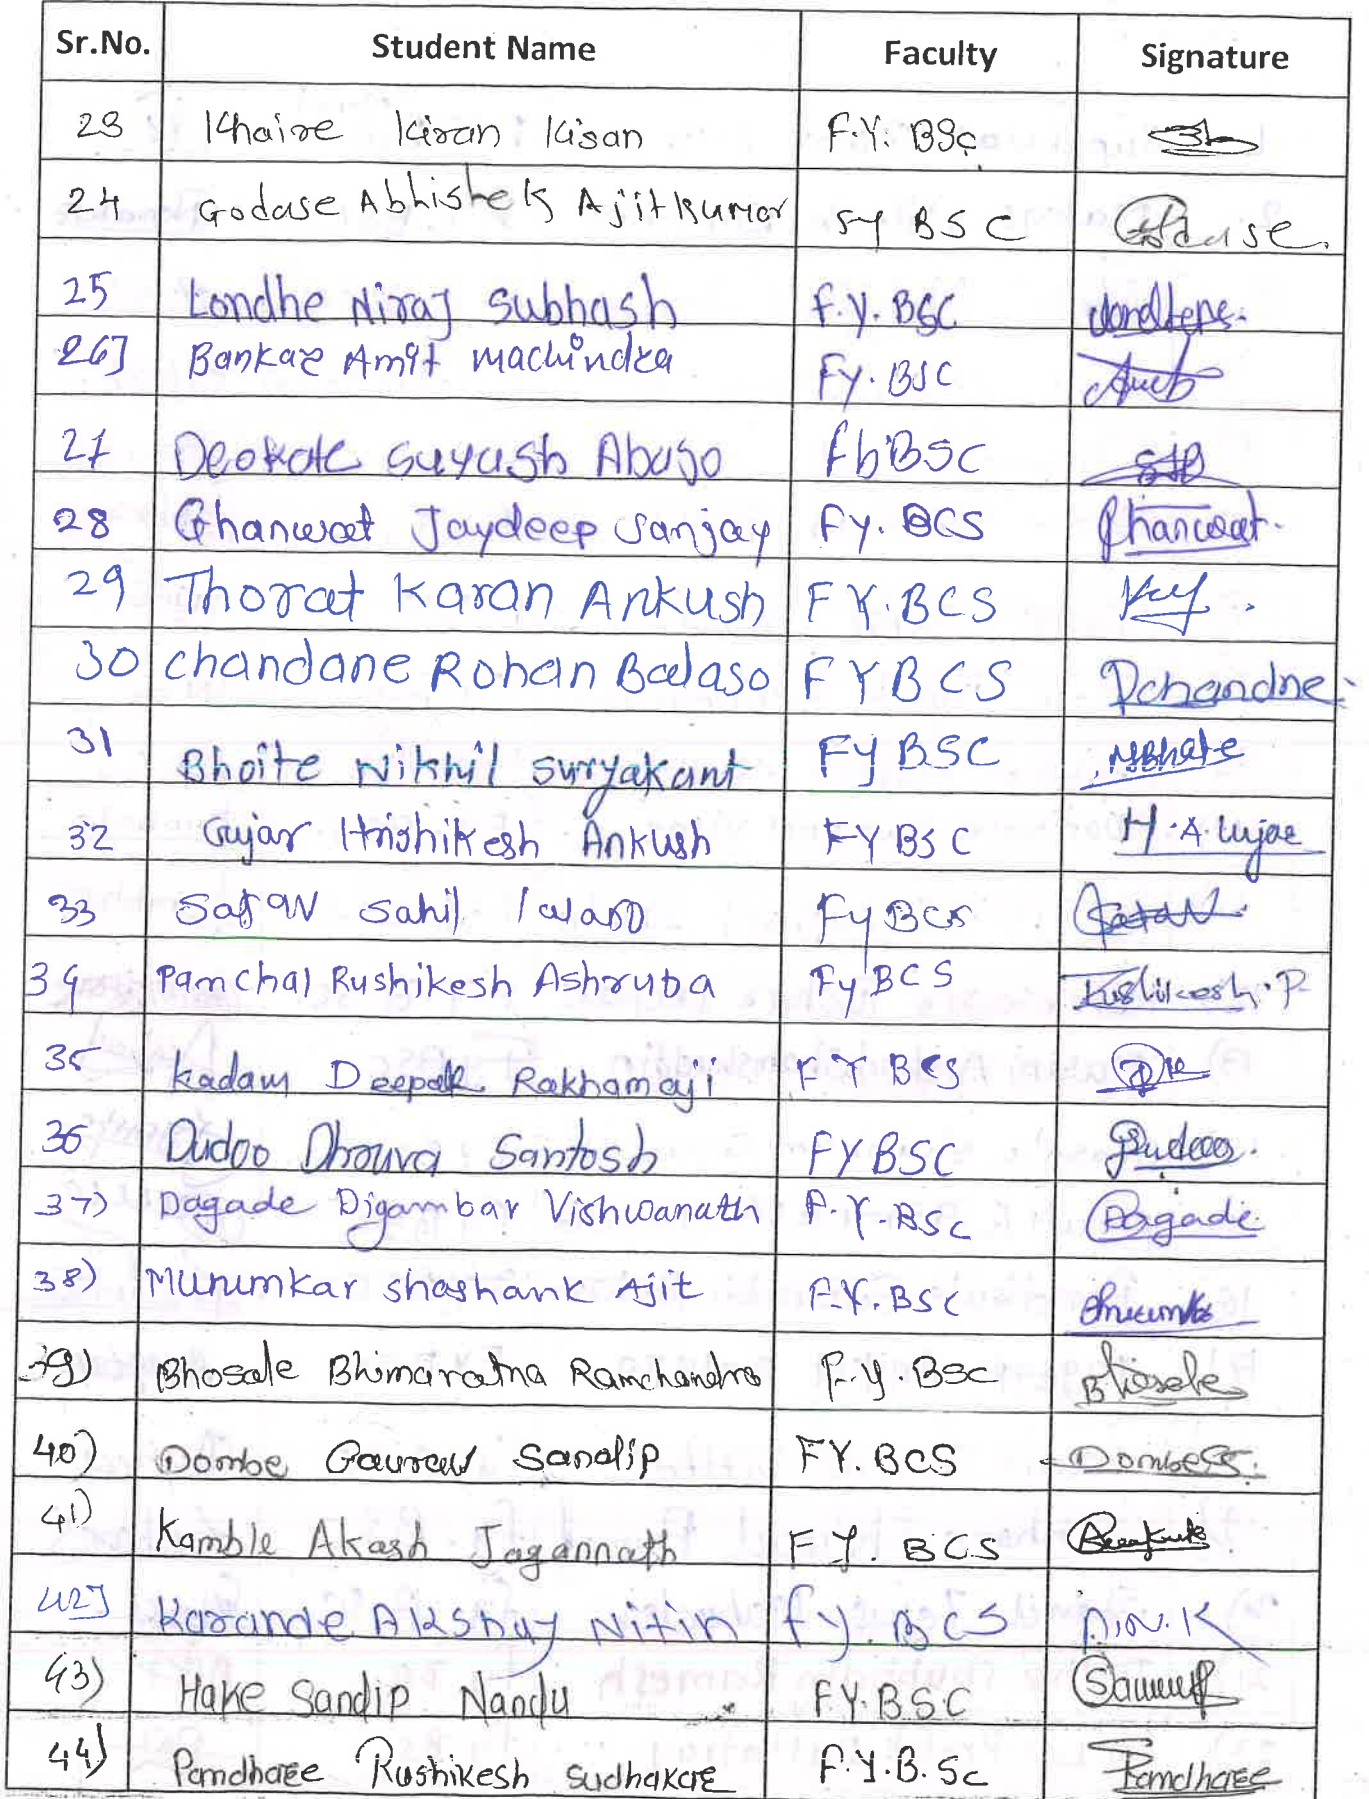 Sr.No. Student Name Faculty Signature
23 Khaire Kiran Kisan F.Y. BSc
24 Godase Abhishek Ajitkumar SY BSC Godase.
25 Londhe Niraj Subhash F.Y. BSC
26] Bankar Amit machindra Fy. BSC
27 Deokate Suyash Abaso Fy BSC
28 Ghanwat Jaydeep Sanjay Fy. BCS Ghanwat.
29 Thorat Karan Ankush FY.BCS
30 Chandane Rohan Balaso FYBCS Rchandne
31 Bhoite Nikhil Suryakant FY BSC
32 Gujar Hrishikesh Ankush FYBSC H.A.Gujar
33 Satav Sahil Lalaso Fy BCS Satav
34 Pamchal Rushikesh Ashruba Fy BCS Rushikesh.P
35 Kadam Deepak Rakhamaji FY BCS
36 Dudoo Dhruva Santosh FYBSC
37) Dagade Digambar Vishwanath F.Y.BSc Dagade
38) Murumkar Shashank Ajit F.Y.BSC
39) Bhosale Bhimaratna Ramchandra F.y.BSc Bhosale
40) Dombe Gaurav Sandip FY.BCS
41) Kamble Akash Jagannath F Y. BCS
42] Karande Akshay Nitin fy. BCS A.N.K
43) Hake Sandip Nandu F.Y.BSC
44) Pamdharee Rushikesh Sudhakar F.Y.B.Sc Pamdharee